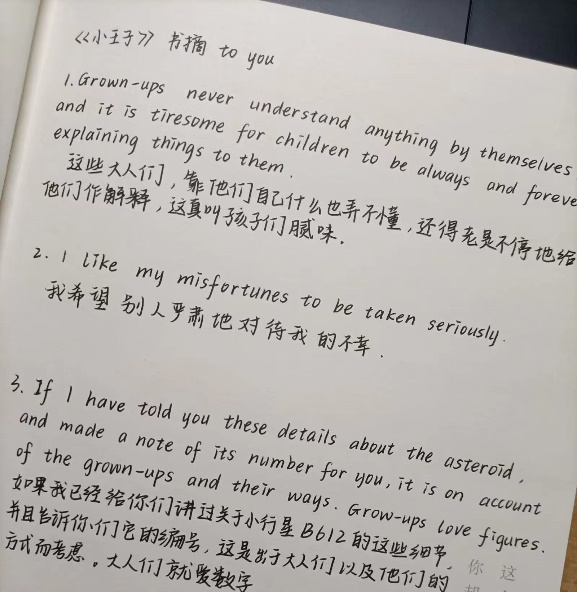 《小王子》 书摘 to you
1. Grown-ups never understand anything by themselves
and it is tiresome for children to be always and foreve
explaining things to them.
这些大人们，靠他们自己什么也弄不懂，还得老是不停地给
他们作解释，这真叫孩子们腻味。
2. I like my misfortunes to be taken seriously.
我希望别人严肃地对待我的不幸.
3. If I have told you these details about the asteroid,
and made a note of its number for you, it is on account
of the grown-ups and their ways. Grow-ups love figures.
如果我已经给你们讲过关于小行星B612的这些细节，
并且告诉你们它的编号，这是出于大人们以及他们的
方式而考虑。大人们就爱数字
你 这